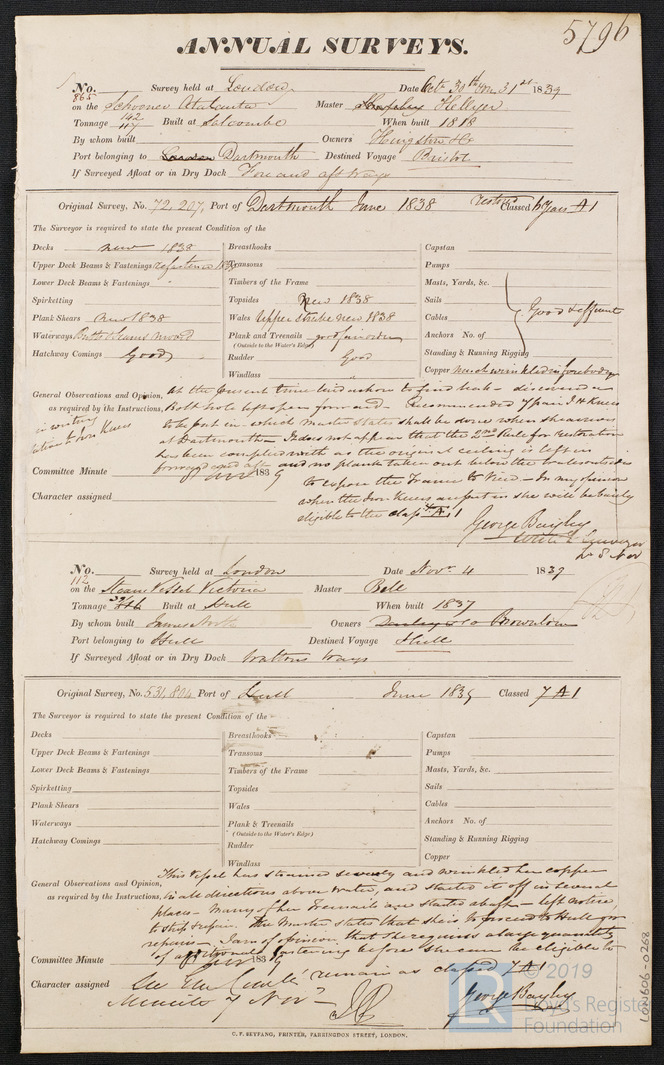 5796
ANNUAL SURVEYS.
No. 865 Survey held at London Date Octr 30th 31st 1839
on the Schooner Atalanta Master Hellyer
Tonnage 142 117 Built at Salcombe When built 1818
By whom built Owners
Port belonging to London Dartmouth Destined Voyage Bristol
If Surveyed Afloat or in Dry Dock Fore and aft Ways
Original Survey, No. 72,207, Port of Dartmouth June 1838 restored Classed 6 years A1
The Surveyor is required to state the present Condition of the
Decks new 1838
Upper Deck Beams & Fastenings refastened 1838
Lower Deck Beams & Fastenings
Spirketting
Plank Shears new 1838
Waterways
Hatchway Comings Good
Breasthooks
Transoms
Timbers of the Frame
Topsides New 1838
Wales upper strake new 1838
Plank and Treenails good
(Outside to the Water's Edge)
Rudder Good
Windlass
Capstan
Pumps
Masts, Yards, &c.
Sails
Cables
Anchors No. of
Standing & Running Rigging
Good & efficient
Copper much wrinkled in forebody
General Observations and Opinion, as required by the Instructions,
At the present time laid ashore to find leak – discovered a
bolt hole left open forward – Recommended 7 pair I H Knees
to be put in – which master states shall be done when she arrives
at Dartmouth – It does not appear that the 2nd Rule for restoration
has been complied with as the original ceiling is left in
forward and aft and no plank taken out below the wales outside
to expose the Frame to View – In my opinion
when the Iron Knees are put in she will be barely
eligible to the class A1
in writing
Iron Knees
Committee Minute 1839
Character assigned
George Bayley
Surveyor
No. 112 Survey held at London Date Novr 4 1839
on the Steam Vessel Victoria Master Bell
Tonnage Built at Hull When built 1837
By whom built James North Owners Brownlow
Port belonging to Hull Destined Voyage Hull
If Surveyed Afloat or in Dry Dock Wattons Ways
Original Survey, No. 531,804 Port of Hull June 1839 Classed 7 A1
The Surveyor is required to state the present Condition of the
Decks
Upper Deck Beams & Fastenings
Lower Deck Beams & Fastenings
Spirketting
Plank Shears
Waterways
Hatchway Comings
Breasthooks
Transoms
Timbers of the Frame
Topsides
Wales
Plank & Treenails
(Outside to the Water's Edge)
Rudder
Windlass
Capstan
Pumps
Masts, Yards, &c.
Sails
Cables
Anchors No. of
Standing & Running Rigging
Copper
General Observations and Opinion, as required by the Instructions,
This Vessel has strained severely and wrinkled her copper
in all directions above water, and started it off in several
places – Many of her Treenails are started abaft – left notice
to strip & repair. The Master states that she is to proceed to Hull for
repairs – I am of opinion that she requires a large quantity
of additional fastening before she can be eligible to
remain as classed 7 A1
Committee Minute 1839
Character assigned See the Comtee Minute 7 Novr
George Bayley
C. F. SEYFANG, PRINTER, FARRINGDON STREET, LONDON.
LON606-0268
© 2019
Lloyd's Register
Foundation
LR